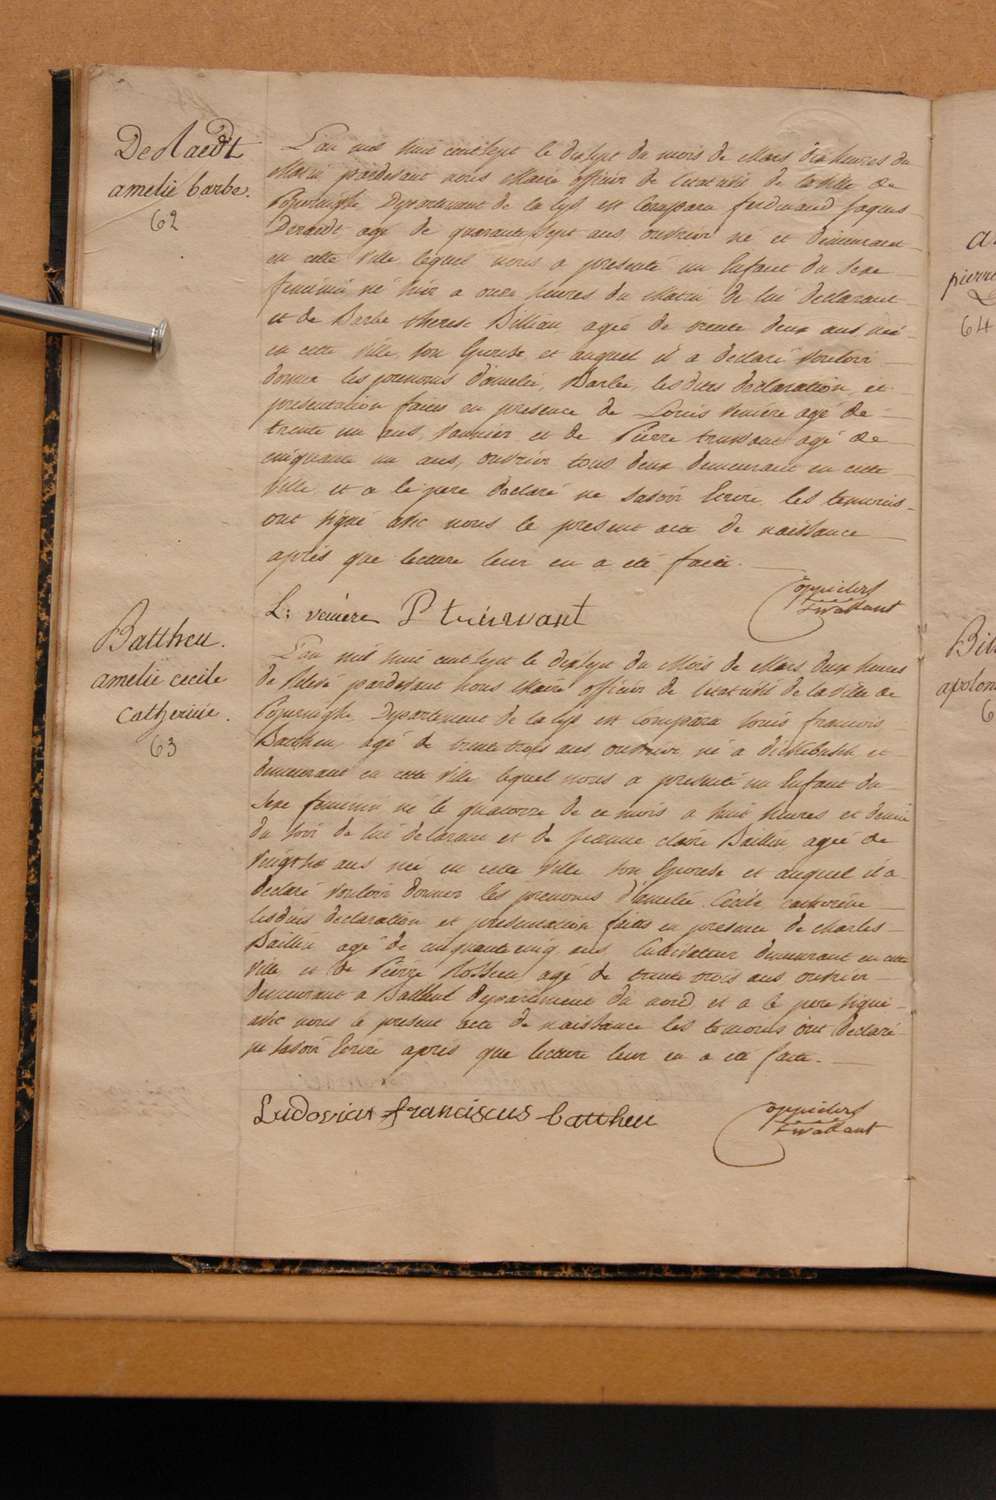 DeRaedt
amelie barbe.
62
L'an mil huit cent sept le dix sept du mois de Mars dix heures du
Matin pardevant nous Maire officier de l'etat civil de la ville de
Poperinghe Departement de la Lys est Comparu ferdinand Jaques
Deraedt agé de quarante sept ans, ouvrier né et demeurant
en cette ville lequel nous a presenté un Enfant du Sexe
feminin né hier a onze heures du Matin de lui declarant
et de Barbe therese Billiau agée de trente deux ans née
en cette ville, son Epouse et auquel il a declaré vouloir
donner les prenoms d'amelie, Barbe, lesdites declaration et
presentation faites en presence de Louis Veniere agé de
trente un ans, vannier et de Pierre agé de
cinquante un ans, ouvrier tous deux demeurant en cette
ville et a le pere declaré ne savoir Ecrire les temoins
ont signé avec nous le present acte de naissance
après que lecture leur en a été faite.
L: veniere P
Battheu.
amelie cecile
catherine.
63
L'an mil huit cent sept le dix sept du Mois de Mars deux heures
de relevé pardevant nous Maire officier de l'etat civil de la ville de
Poperinghe Departement de la Lys est Comparu Louis francois
Battheu, agé de trente trois ans ouvrier né a dickebusch et
demeurant en cette ville lequel nous a presenté un Enfant du
Sexe feminin né le quatorze de ce mois a huit heures et demie
du soir de lui declarant et de Jeanne claire Baillin agée de
ans née en cette ville son Epouse et auquel il a
declaré vouloir donner les prenoms d'amelie Cécile catherine
lesdites declaration et presentation faites en presence de charles
Baillin agé de cinquante cinq ans Cultivateur demeurant en cette
ville et de Pierre agé de trente trois ans ouvrier
demeurant a Bailleul departement du nord et a le pere signé
avec nous le present acte de naissance les temoins ont declaré
ne savoir Ecrire après que lecture leur en a été faite.
Ludovicus franciscus battheu
pierre
64
apolon
6